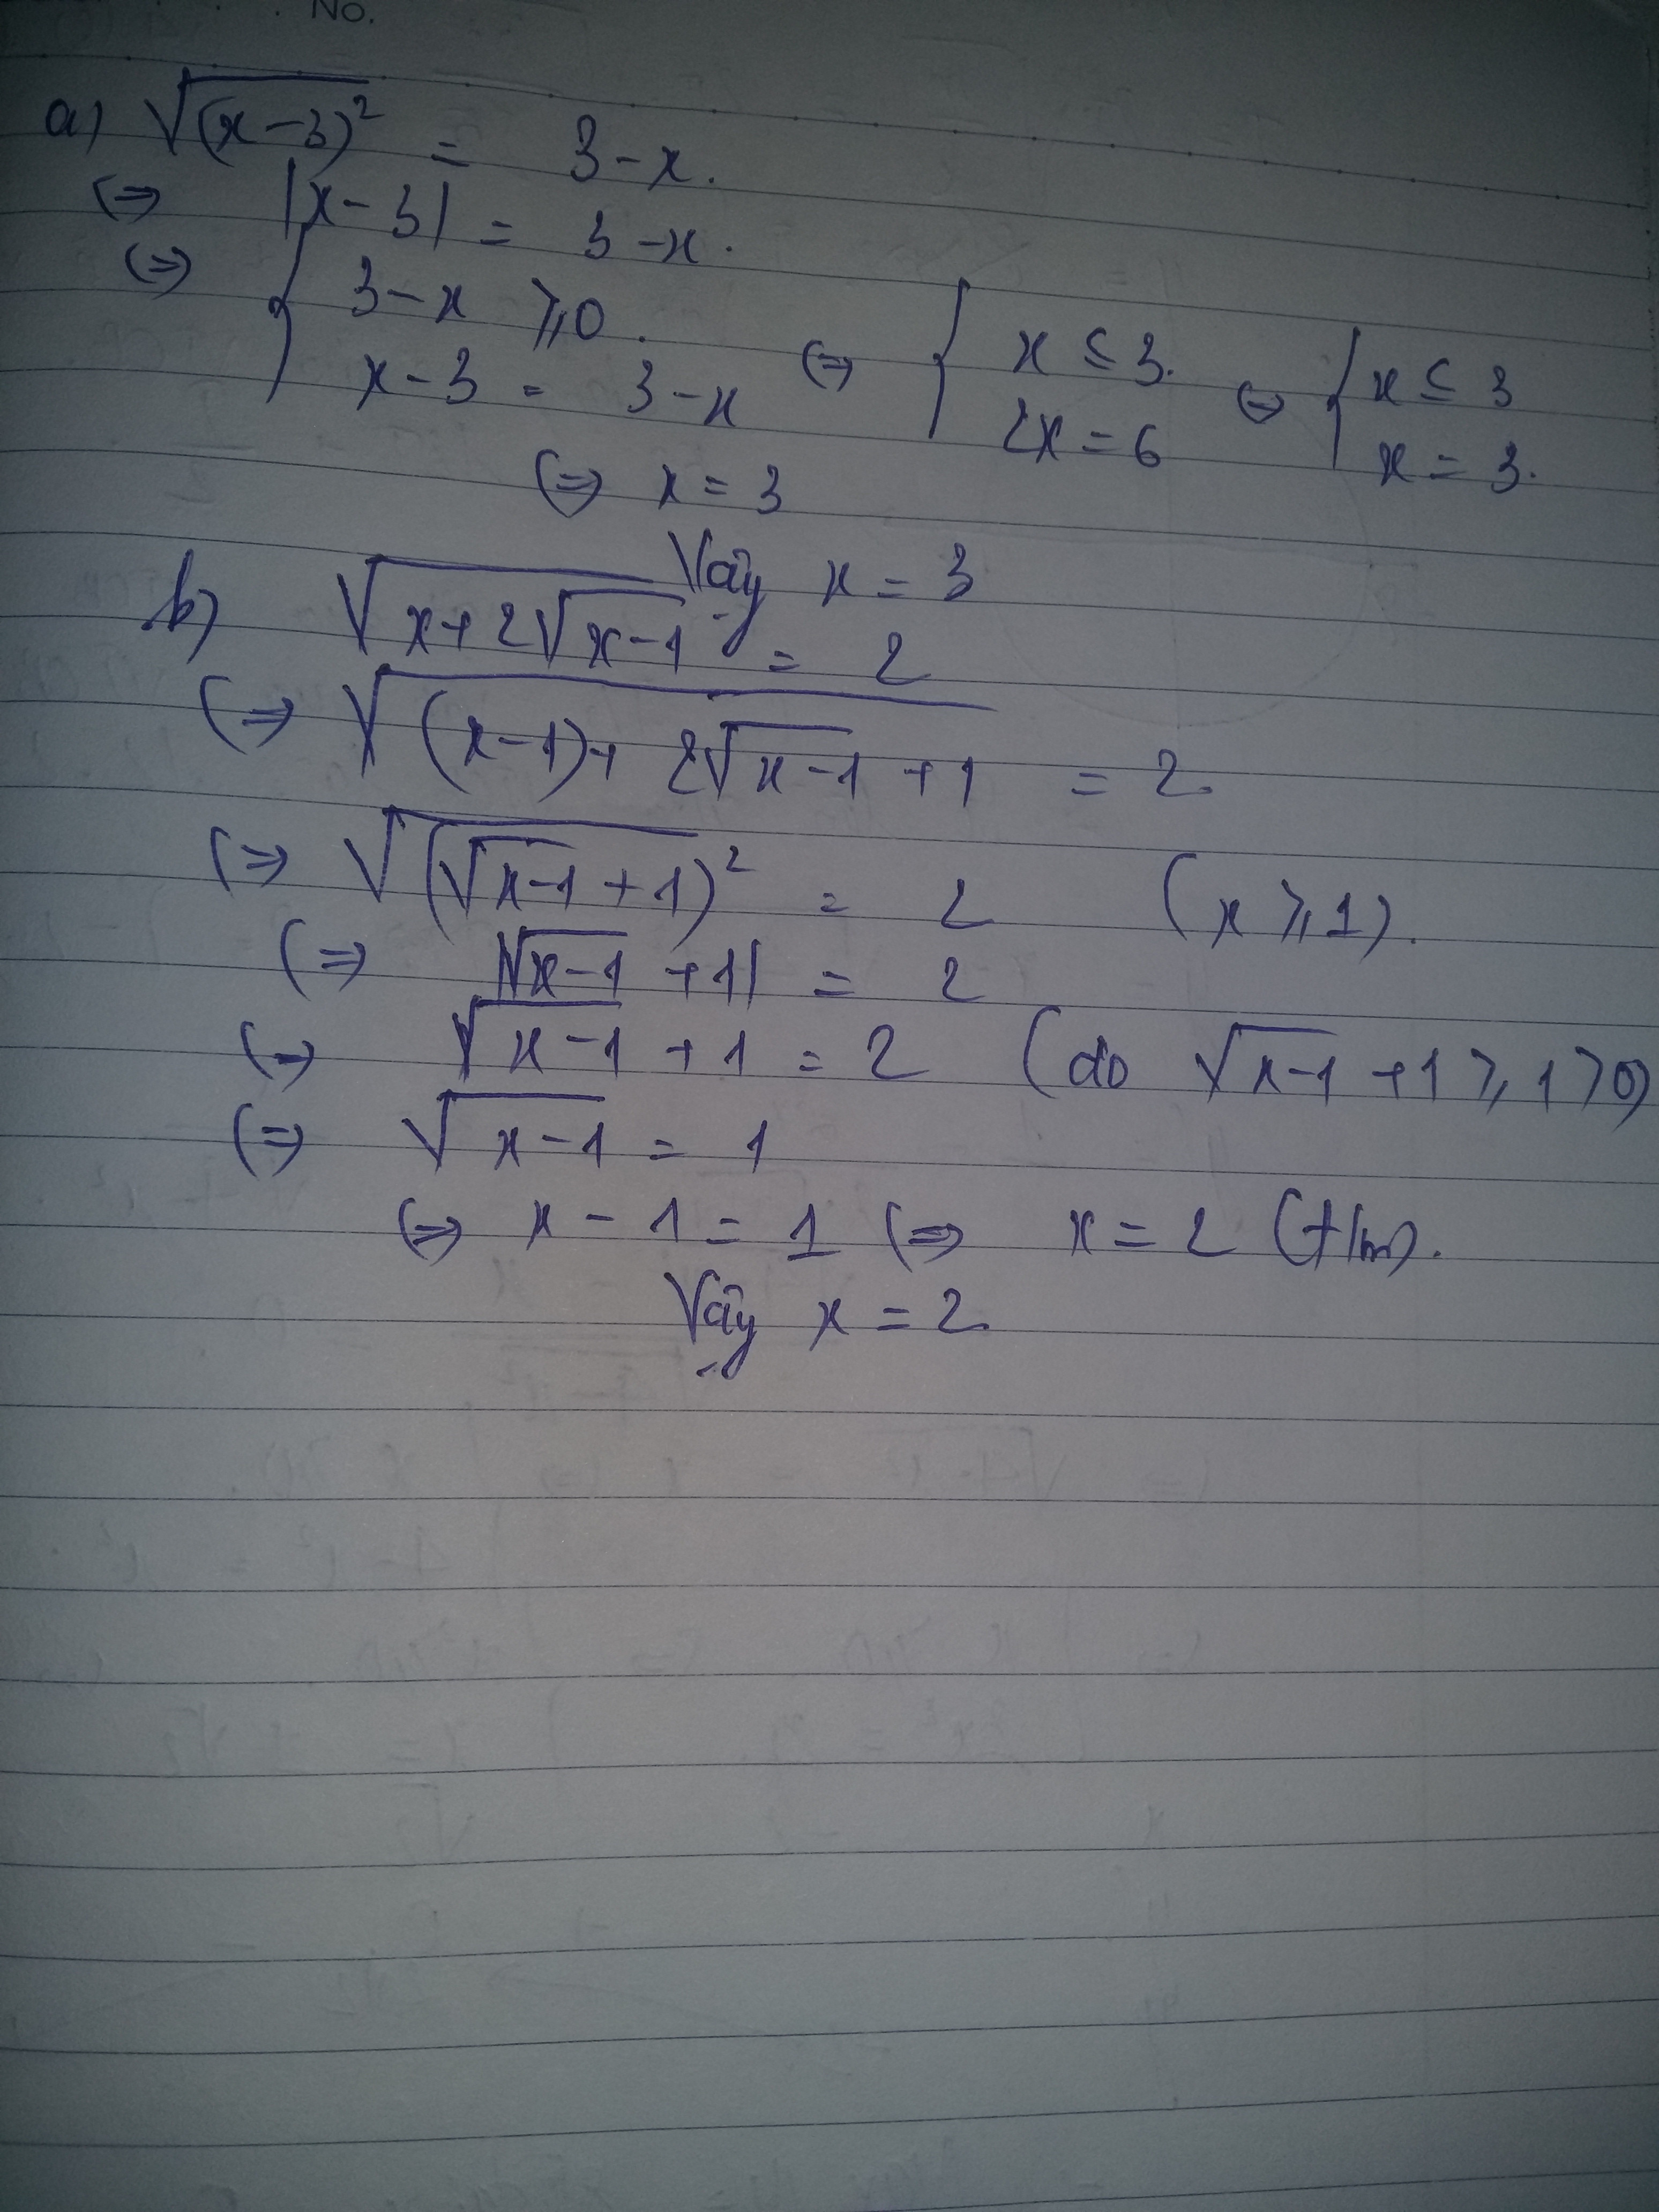 No.
a) √(x-3)² = 3-x.
(=) |x-3| = 3-x.
(=) { 3-x ⩾ 0. x-3 = 3-x (=) { x ≤ 3. 2x = 6 (=) { x ≤ 3 x = 3.
(=) x = 3
Vậy x = 3
b) √(x+2√(x-1)) = 2
(=) √((x-1)+2√(x-1)+1) = 2.
(=) √(√(x-1)+1)² = 2 (x ⩾ 1).
(=) |√(x-1)+1| = 2
(=) √(x-1)+1 = 2 (do √(x-1)+1 ⩾ 1 > 0)
(=) √(x-1) = 1
(=) x-1 = 1 (=) x = 2 (t/m).
Vậy x = 2